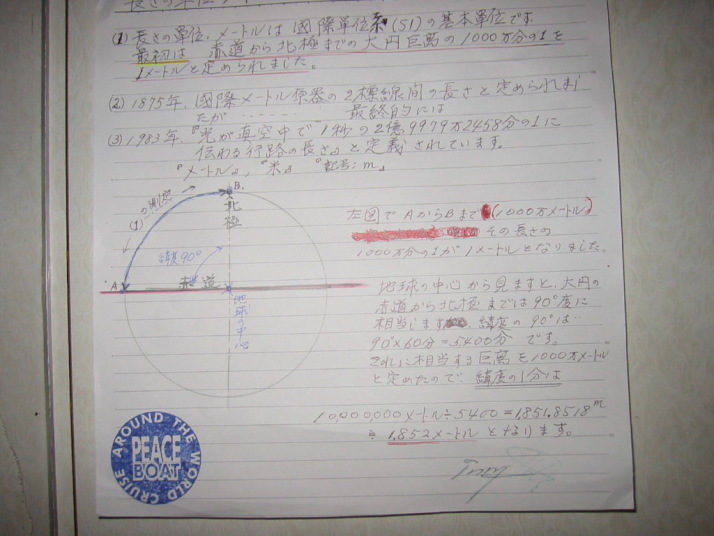 長さの単位
(1) 長さの単位、メートルは 國際単位系 (SI) の基本単位です
最初は 赤道から北極までの大円巨离の1000万分の1を
1メートルと定められました。
(2) 1875年、國際メートル原器の2標線間の長さと定められまし
たが ‥‥‥ 最終的には
(3) 1983年、『光が真空中で1秒の2億9979万2458分の1に
伝わる行路の長さ』と定義されています。
『メートル』,『米』『記号: m』
B
北極
(1)の測定
緯度90°
A
赤道
地球の中心
左図でAからBまで(1000万メートル)
その長さの
1000万分の1が1メートルとなりました。
地球の中心から見ますと、大円の
赤道から北極までは90°度に
相当します 緯度の90°は‥
90°×60分=5400分 です。
これに相当する巨离を1000万メートル
と定めたので、緯度の1分は
10,000,000メートル÷5400=1,851.8518m
≒ 1,852メートルとなります。
AROUND THE WORLD
PEACE
BOAT
CRUISE